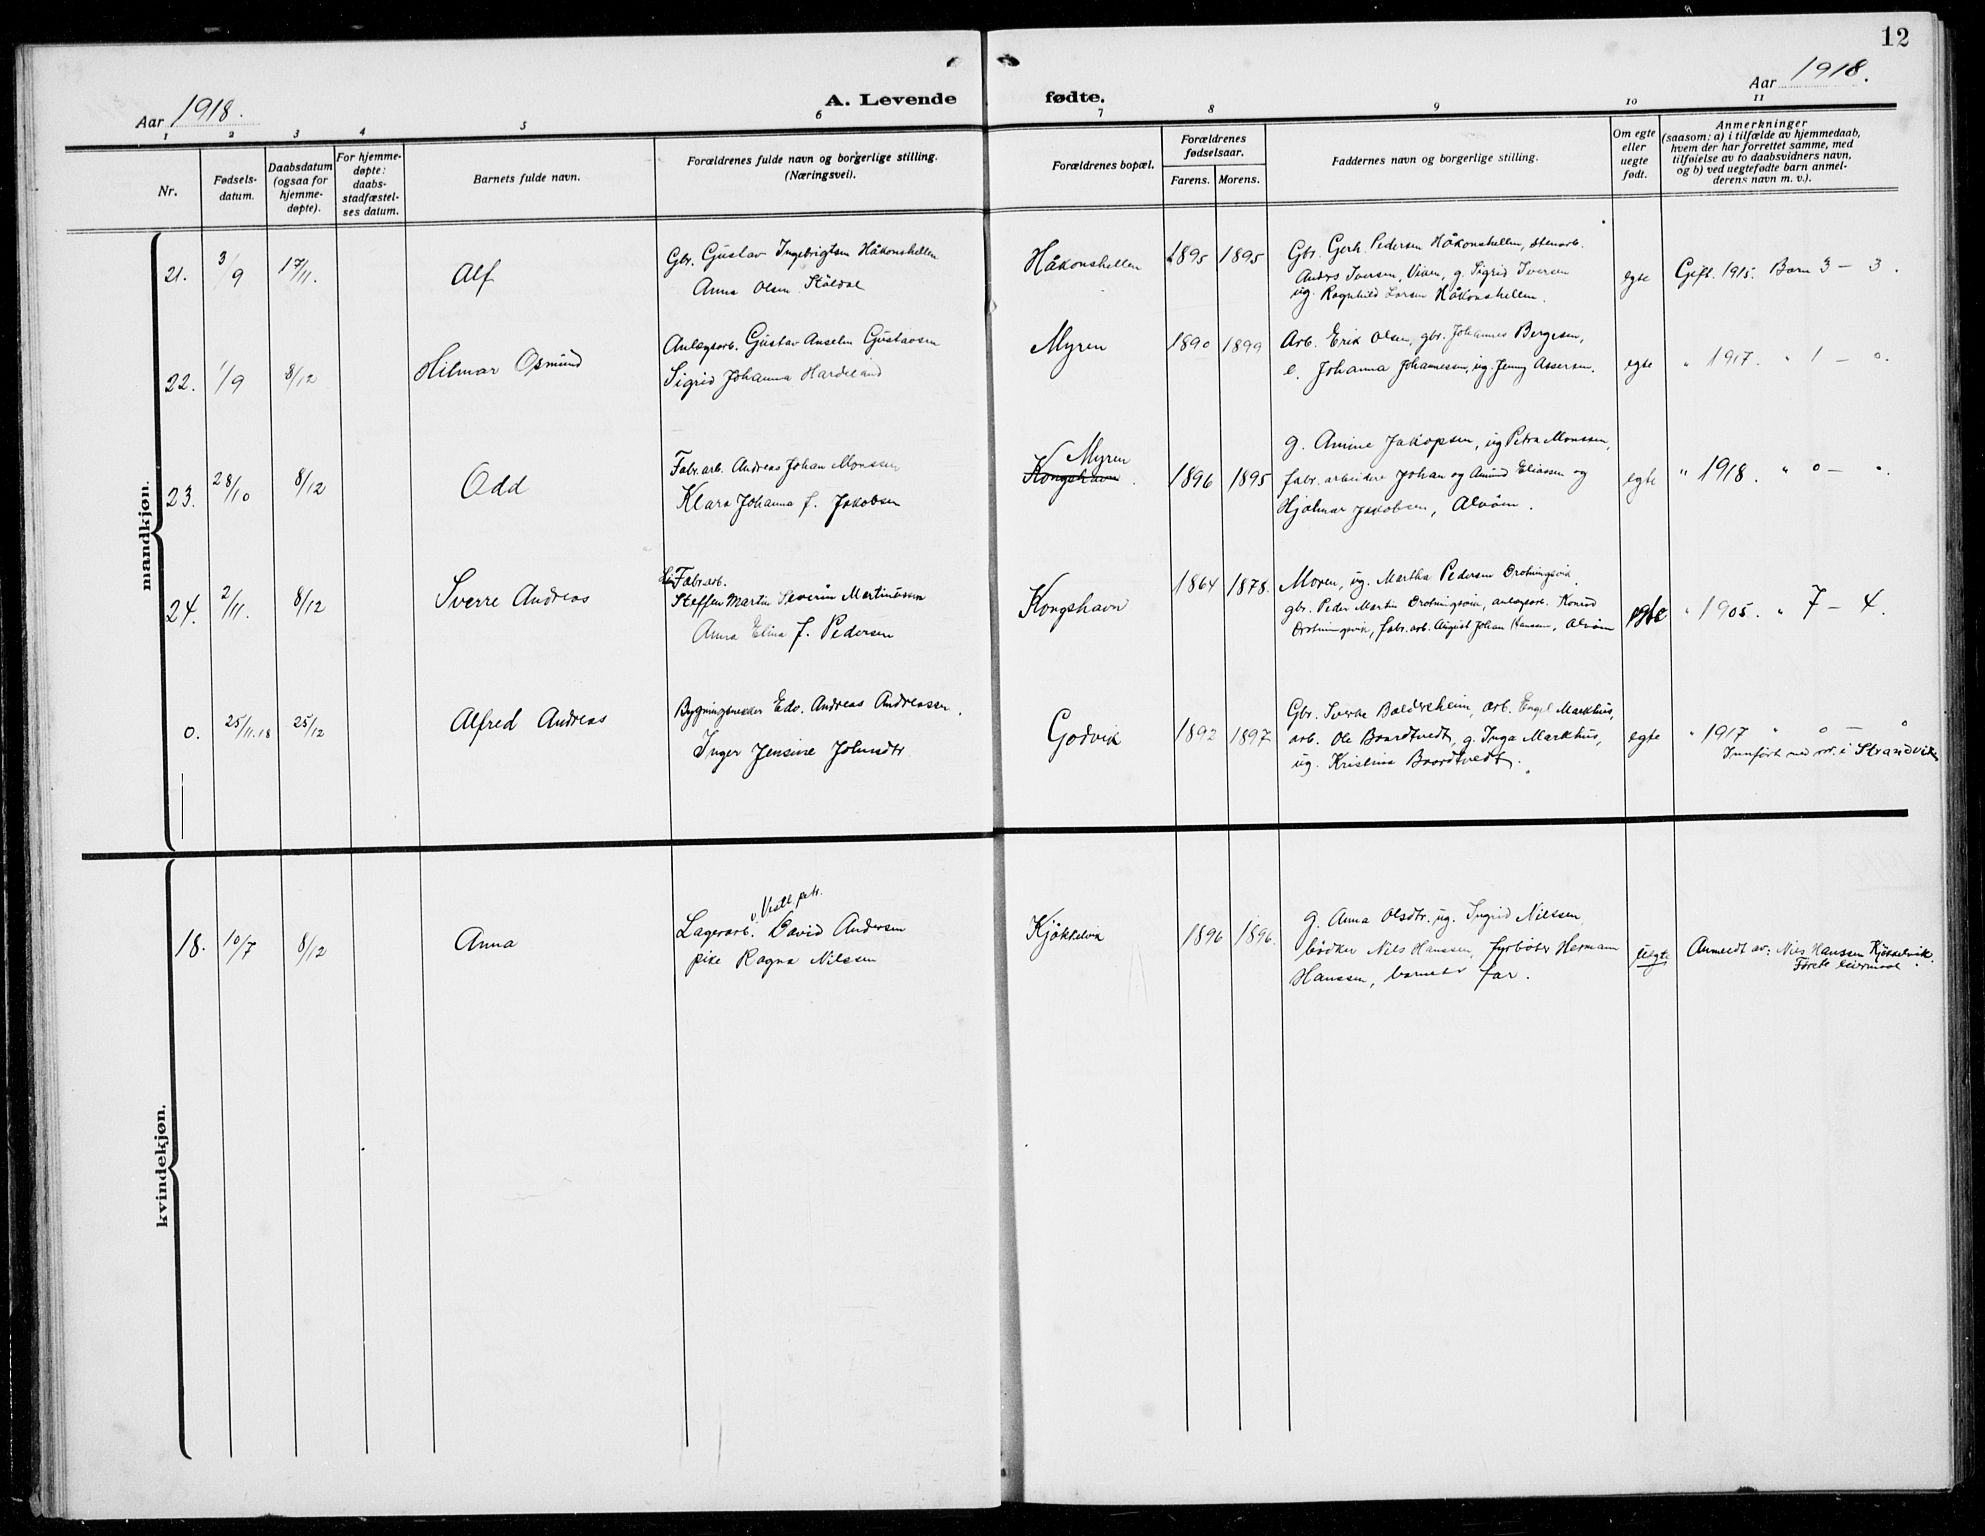 12
Aar 1918.
A. Levende fødte.
Aar 1918.
1 2 3 4 5 6 7 8 9 10 11
Nr.
Fødsels-
datum.
Daabsdatum
(ogsaa for
hjemme-
døpte).
For hjemme-
døpte:
daabs-
stadfæstel-
ses datum.
Barnets fulde navn.
Forældrenes fulde navn og borgerlige stilling.
(Næringsvei).
Forældrenes bopæl.
Forældrenes
fødselsaar.
Farens. Morens.
Faddernes navn og borgerlige stilling.
Om egte
eller
uegte
født.
Anmerkninger
(saasom: a) i tilfælde av hjemmedaab,
hvem der har forrettet samme, med
tilføielse av to daabsvidners navn,
og b) ved uegtefødte barn anmel-
derens navn m. v.).
mandkjøn.
21.
3/9
17/11.
Alf
Gbr. Gustav Ingebrigtsen Håkonshellen
Anna Olsen
Håkonshellen
1895 1895
Gbr. Gerh. Pedersen Håkonshellen, stenarb.
Anders Iversen, Viken, g. Sigrid Iversen
ug. Ragnhild Larsen Håkonshellen.
egte
Gift. 1915. Barn 3 — 3.
22.
1/9
8/12
Hilmar Osmund
Anlægsarb. Gustav Anselm Gustavsen
Sigrid Johanna Hardeland
Myren
1890 1899
Arb. Erik Olsen, gbr. Johannes Bergesen,
e. Johanna Johannessen, ug. Jenny Assersen.
egte
" 1917. " 1 — 0.
23.
28/10
8/12
Odd
Fabr. arb. Andreas Johan Monssen
Klara Johanna f. Jakobsen
Myren
Kongshavn.
1896 1895
g. Amine Jakopsen, ug Petra Monssen,
fabr. arbeidere Johan og Amund Eliassen og
Hjalmar Jakobsen, Alvøen.
egte
" 1918. " 0 — 0.
24.
2/11.
8/12
Sverre Andreas
Fabr. arb.
Steffen Martin Severin Martinussen
Anna Elina f. Pedersen
Kongshavn
1864 1878.
Moren, ug. Martha Pedersen Drotningsvik.
gbr. Peder Martin Drotningsvik, anlægsarb. Konrad
Drotningsvik, fabr. arb. August Johan Hansen, Alvøen
egte
" 1905. " 7 — 4.
0.
25/11.18
25/12
Alfred Andreas
Bygningsnekker Edv. Andreas Andreassen.
Inger Jensine Johnsdtr
Godvik
1892 1897
Gbr. Sverke Baldersheim, arb. Engel Markhus,
arb. Ole Baardtvedt, g. Inga Markhus,
ug. Kristina Baardtvedt.
egte
" 1917 " 0 — 0
Innført med nr. i Strandvik
kvindekjøn.
18.
10/7
8/12
Anna
Lagerarb. David Andersen
pike Ragna Nilssen
Kjøkkelvik
1896 1896.
g. Anna Olsdtr. ug. Ingrid Nilssen
bødker Nils Hanssen, fyrbøter Hermann
Hanssen, barnets far.
uegte
Anmeldt av: Nils Hanssen Kjøkkelvik.
Første leiermaal